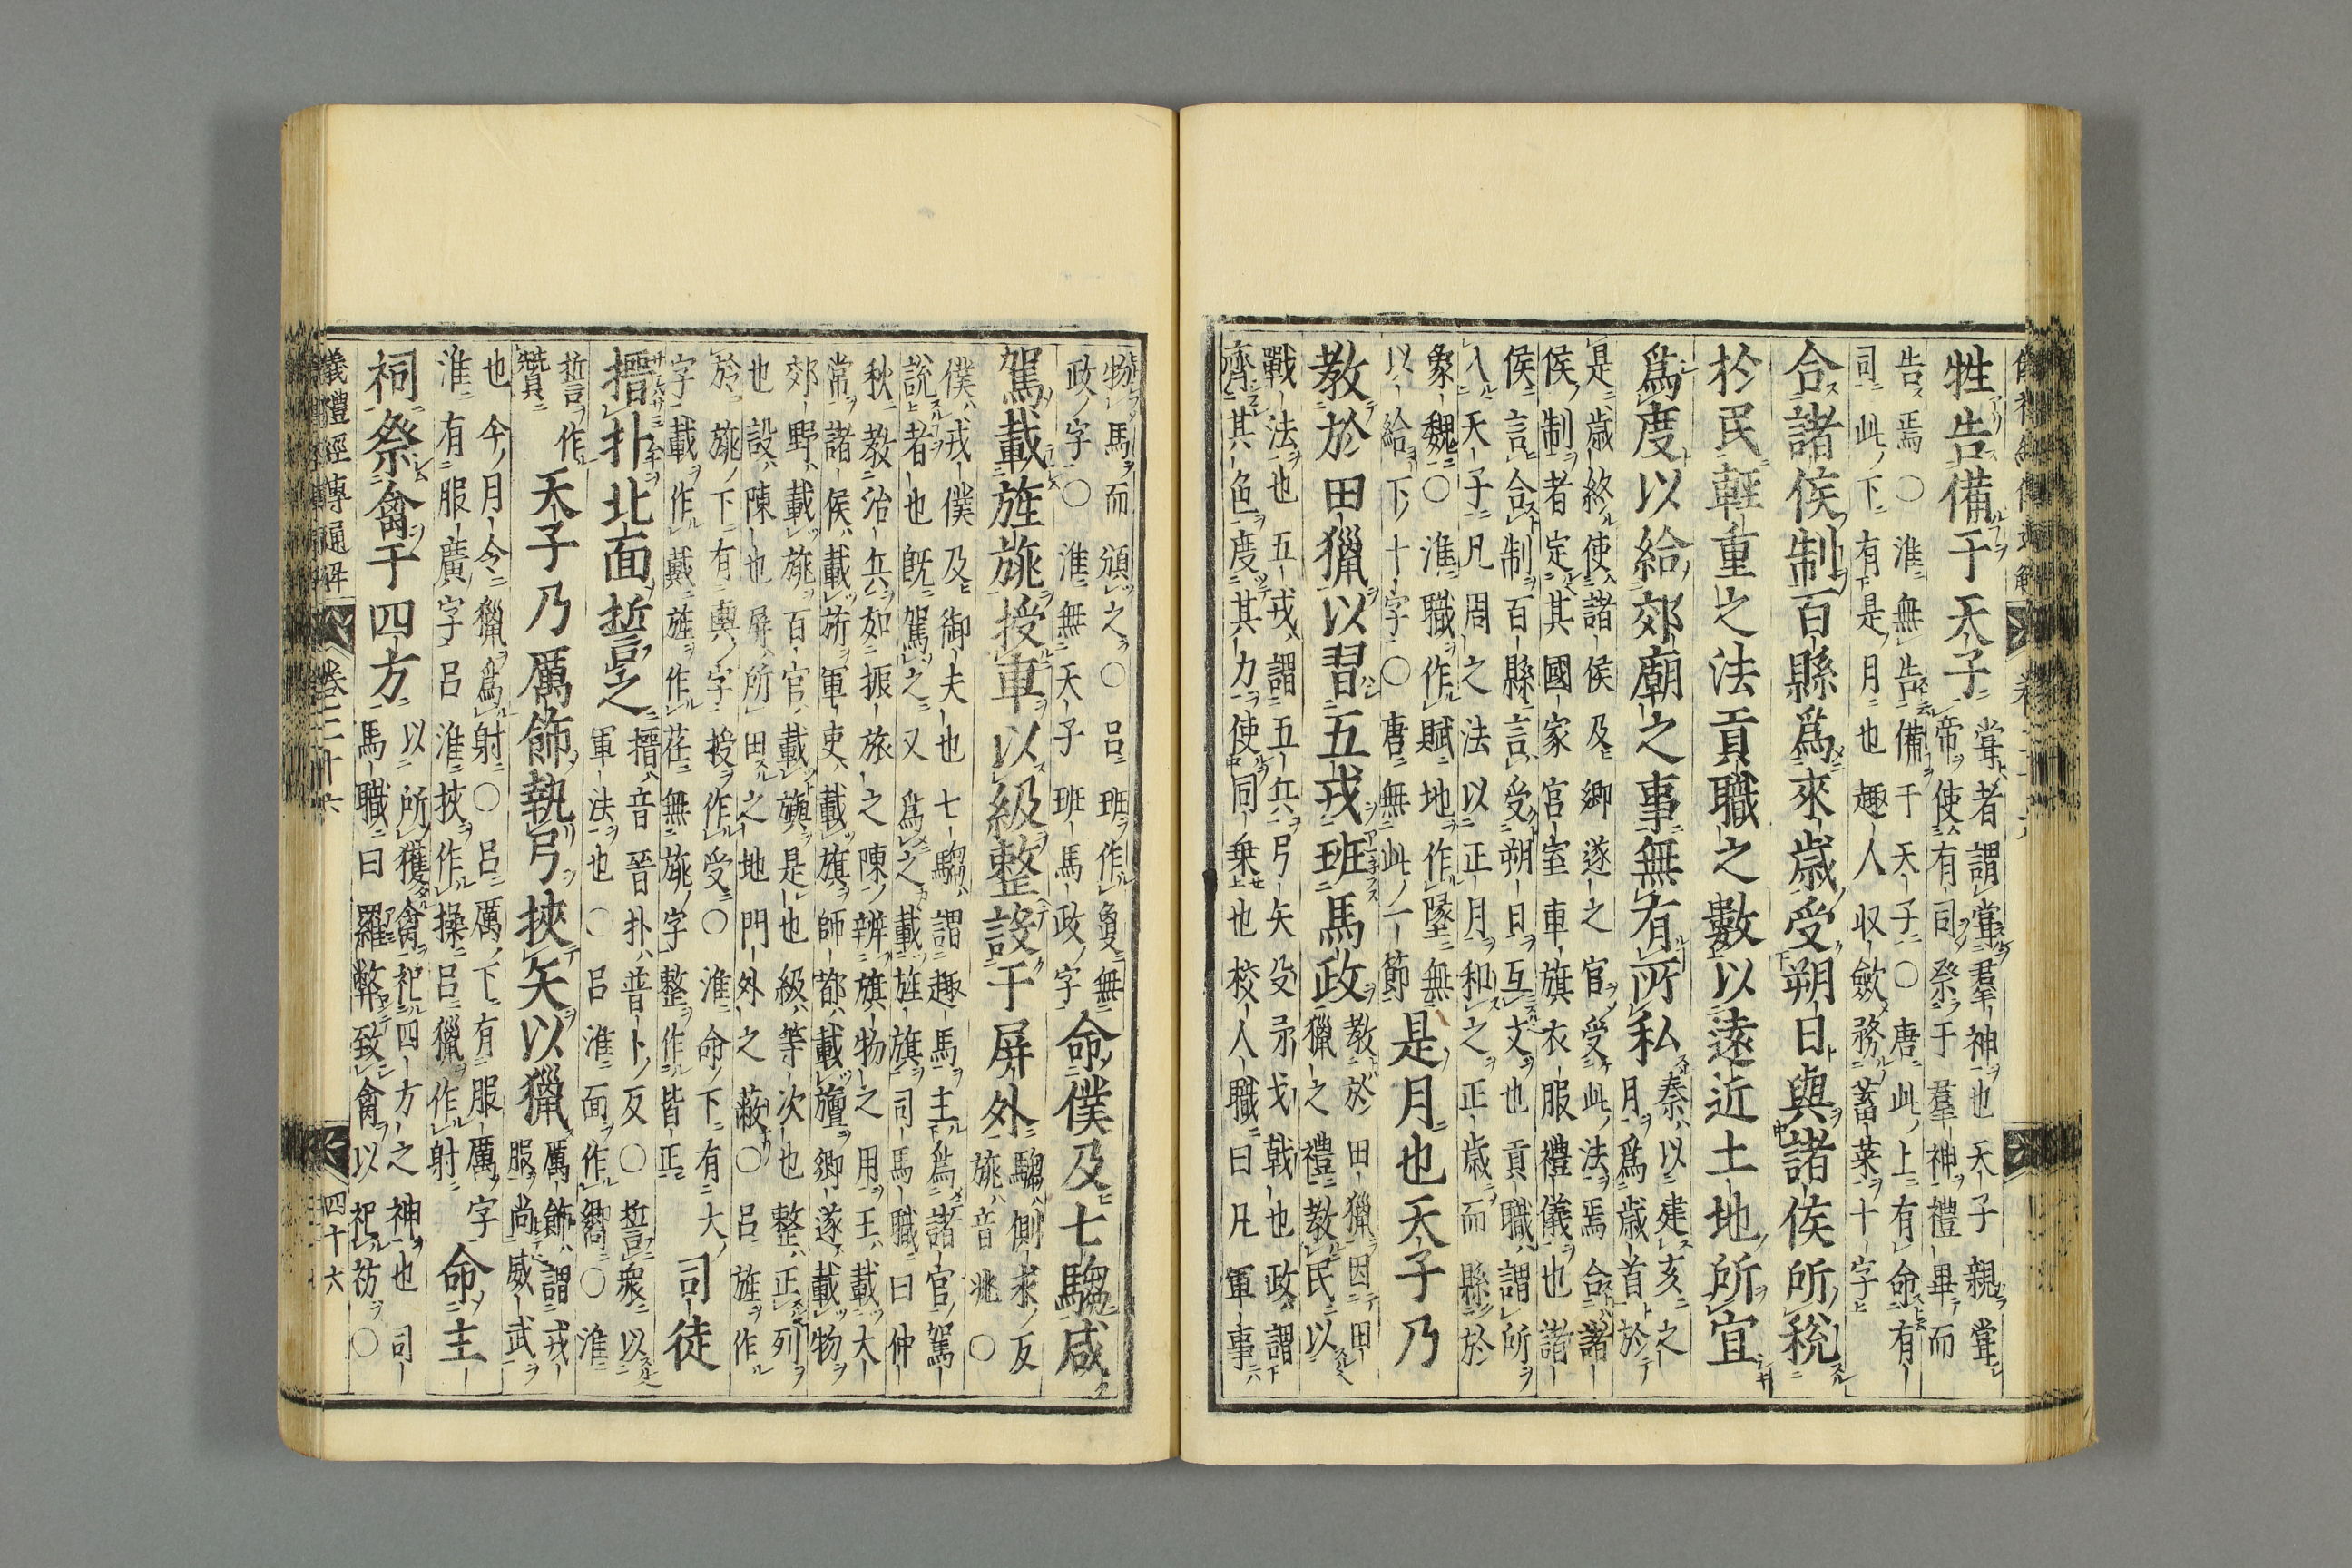 牲告備于天子
甞者謂甞羣神也天子親甞
帝使有司祭于羣神禮畢而
告焉〇淮無告備于天子〇唐此上有命有
司此下有是月也趣人収斂務蓄菜十字
合諸侯制百縣爲來歲受朔日與諸侯所稅
於民輕重之法貢職之數以遠近土地所宜
爲度以給郊廟之事無有所私
秦以建亥之
月爲歲首於
是歲終使諸侯及鄉遂之官受此法焉合諸
侯制者定其國家宮室車旗衣服禮儀也諸
侯言合制百縣言受朔日互文也貢職謂所
入天子凡周之法以正月和之正歲而縣於
象魏〇淮職作賦地作墜無
以給下十字〇唐無此一節
是月也天子乃
教於田獵以習五戎班馬政
教於田獵因田
獵之禮教民以
戰法也五戎謂五兵弓矢殳矛戈戟也政謂
齊其色度其力使同乗也校人職曰凡軍事
物馬而頒之〇呂班作無
政字〇淮無天子班馬政字
命僕及七騶咸
駕載旌旐授車以級整設于屏外
騶側求反
旐音兆〇
僕戎僕及御夫也七騶謂趣馬主爲諸官駕
說者也既駕之又爲之載旌旗司馬職曰仲
秋教治兵如振旅之陳辨旗物之用王載大
常諸侯載旂軍吏載旗師都載旜鄉遂載物
郊野載旐百官載旟是也級等次也整正列
也設陳也屏所田之地門外之蔽〇呂旌作
於旐下有輿字授作受〇淮命下有大
字載作戴旌作荏無旐字整作皆正
司徒
搢扑北面誓之
搢音晉扑普卜反〇誓衆以
軍法也〇呂淮面作嚮〇淮
誓作
贊
天子乃厲飾執弓挾矢以獵
厲飾謂戎
服尚威武
也今月令獵爲射〇呂厲下有服厲字
淮有服廣字呂淮挾作操呂獵作射
命主
祠祭禽于四方
以所獲禽祀四方之神也司
馬職曰羅弊致禽以祀祊〇
儀禮經傳通解 卷二十六 四十六